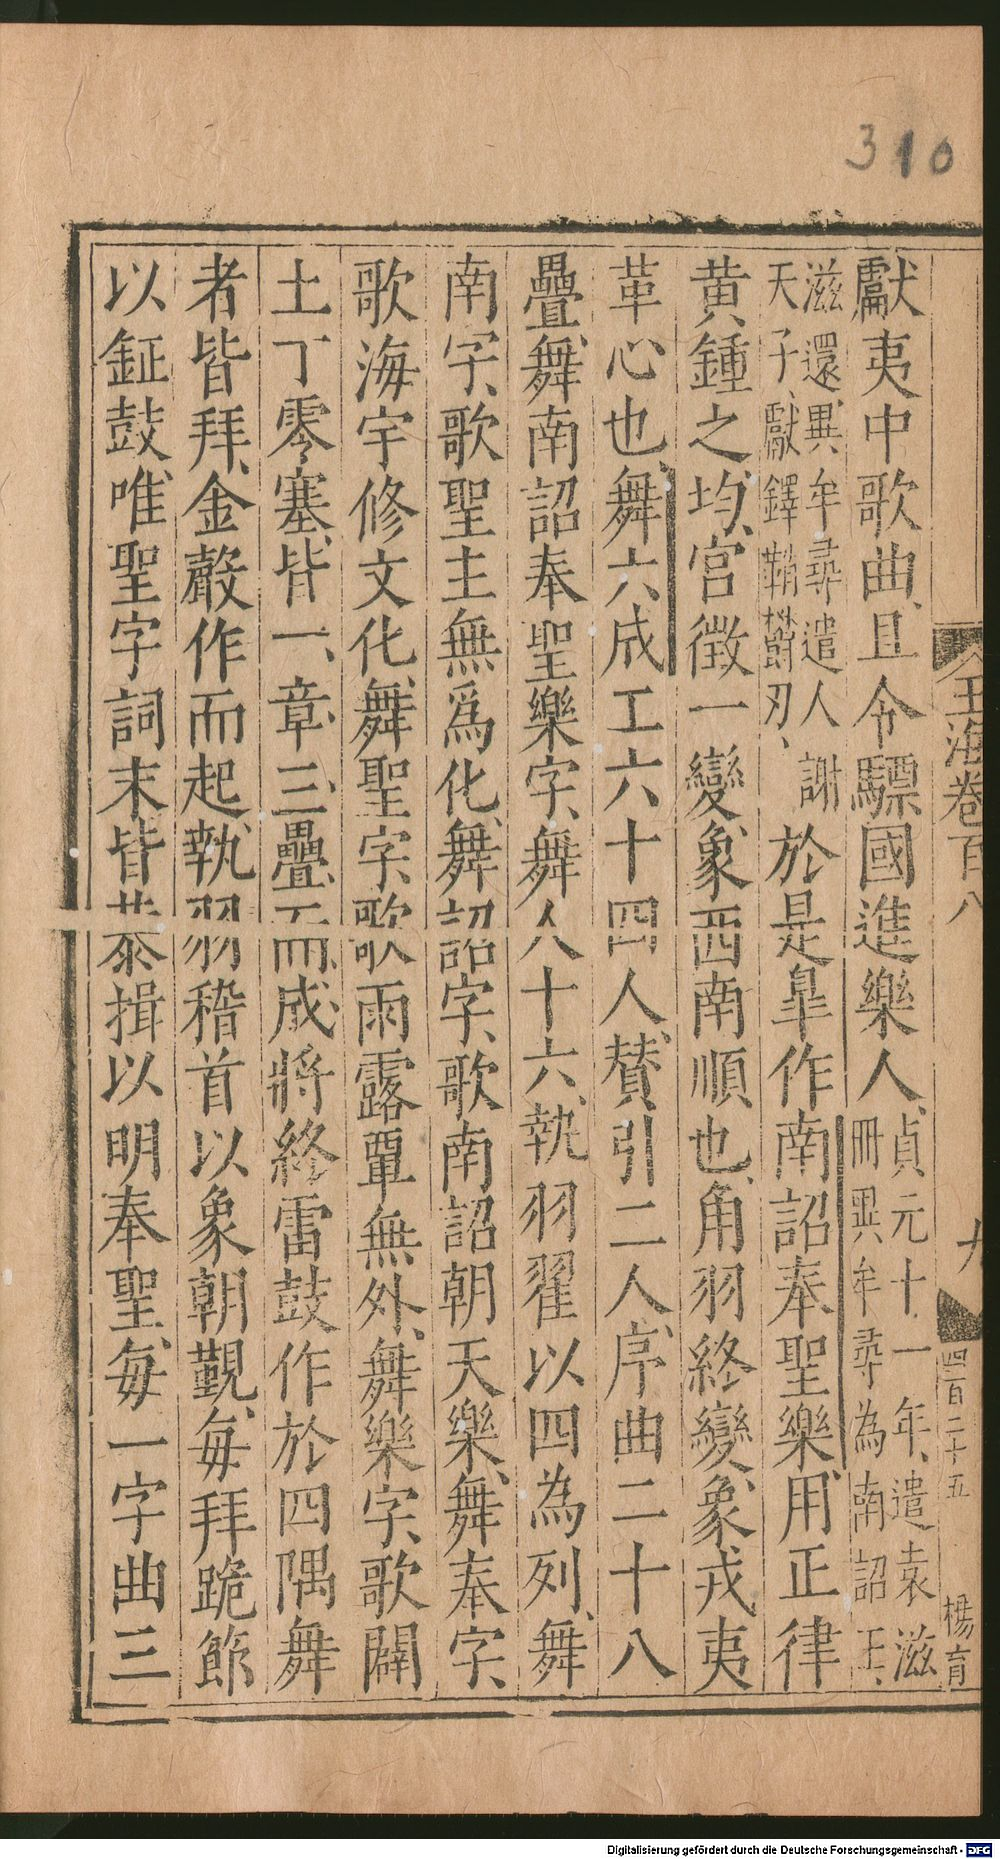 310
玉海卷百八
九
四百二十五
楊育
獻夷中歌曲且令驃國進樂人貞元十一年遣袁滋
冊異牟尋為南詔王
滋還異牟尋遣人謝
天子獻鐸鞘鬱刃於是臯作南詔奉聖樂用正律
黃鍾之均宮徵一變象西南順也角羽終變象戎夷
革心也舞六成工六十四人贊引二人序曲二十八
疊舞南詔奉聖樂字舞人十六執羽翟以四為列舞
南字歌聖主無為化舞詔字歌南詔朝天樂舞奉字
歌海宇修文化舞聖字歌雨露覃無外舞樂字歌闢
土丁零塞皆一章三疊而成將終雷鼓作於四隅舞
者皆拜金聲作而起執羽稽首以象朝覲每拜跪節
以鉦鼓唯聖字詞末皆恭揖以明奉聖每一字曲三
Digitalisierung gefördert durch die Deutsche Forschungsgemeinschaft - DFG